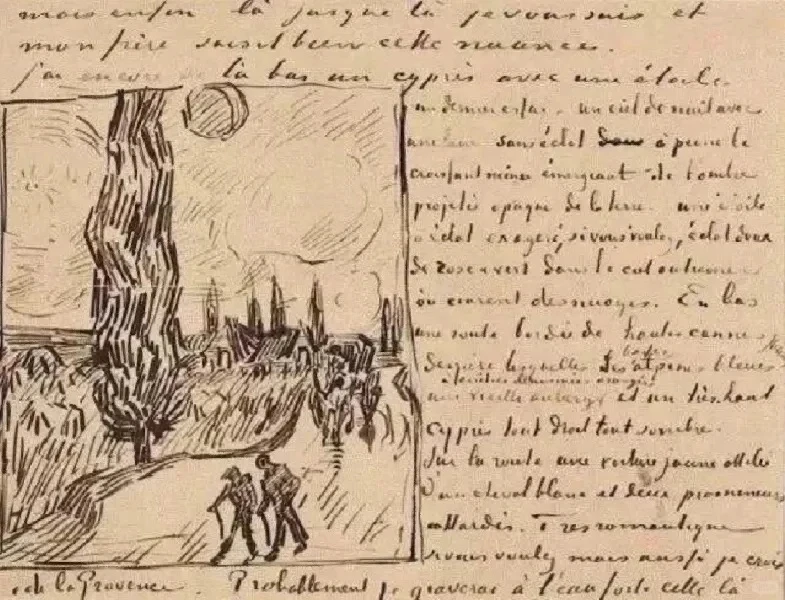 mais enfin là jusque là je vous suis et
mon frère saisit bien cette nuance.
J'ai encore de là bas un cyprès avec une étoile
un dernier essai – un ciel de nuit avec
une lune sans éclat à peine le
croissant mince émergeant de l'ombre
projetée opaque de la terre – une étoile
à éclat exageré, si vous voulez, éclat doux
de rose & vert dans le ciel outremer
où courent des nuages. En bas
une route bordée de hautes cannes
derrière lesquelles les basses alpines bleues
à fenêtres illuminées orangée
une vieille auberge et un très haut
cyprès tout droit tout sombre.
Sur la route une voiture jaune attelée
d'un cheval blanc et deux promeneurs
attardés. Très romantique
si vous voulez mais aussi je crois
de la Provence. Probablement je graverai à l'eau forte celle là